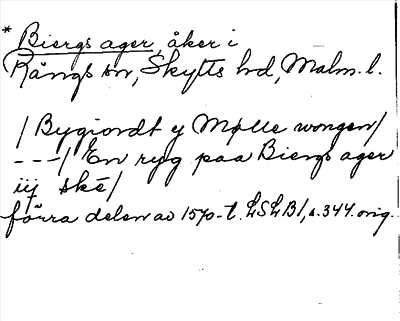 * Biergs ager, åker i
Rångs sn, Skytts hd, Malm. l.
/ Bygiordt y Mølle wongen/
---/ En ryg paa Biergs ager
iij skē/
förra delen av 1570-t. LSLB1, s. 344. orig.